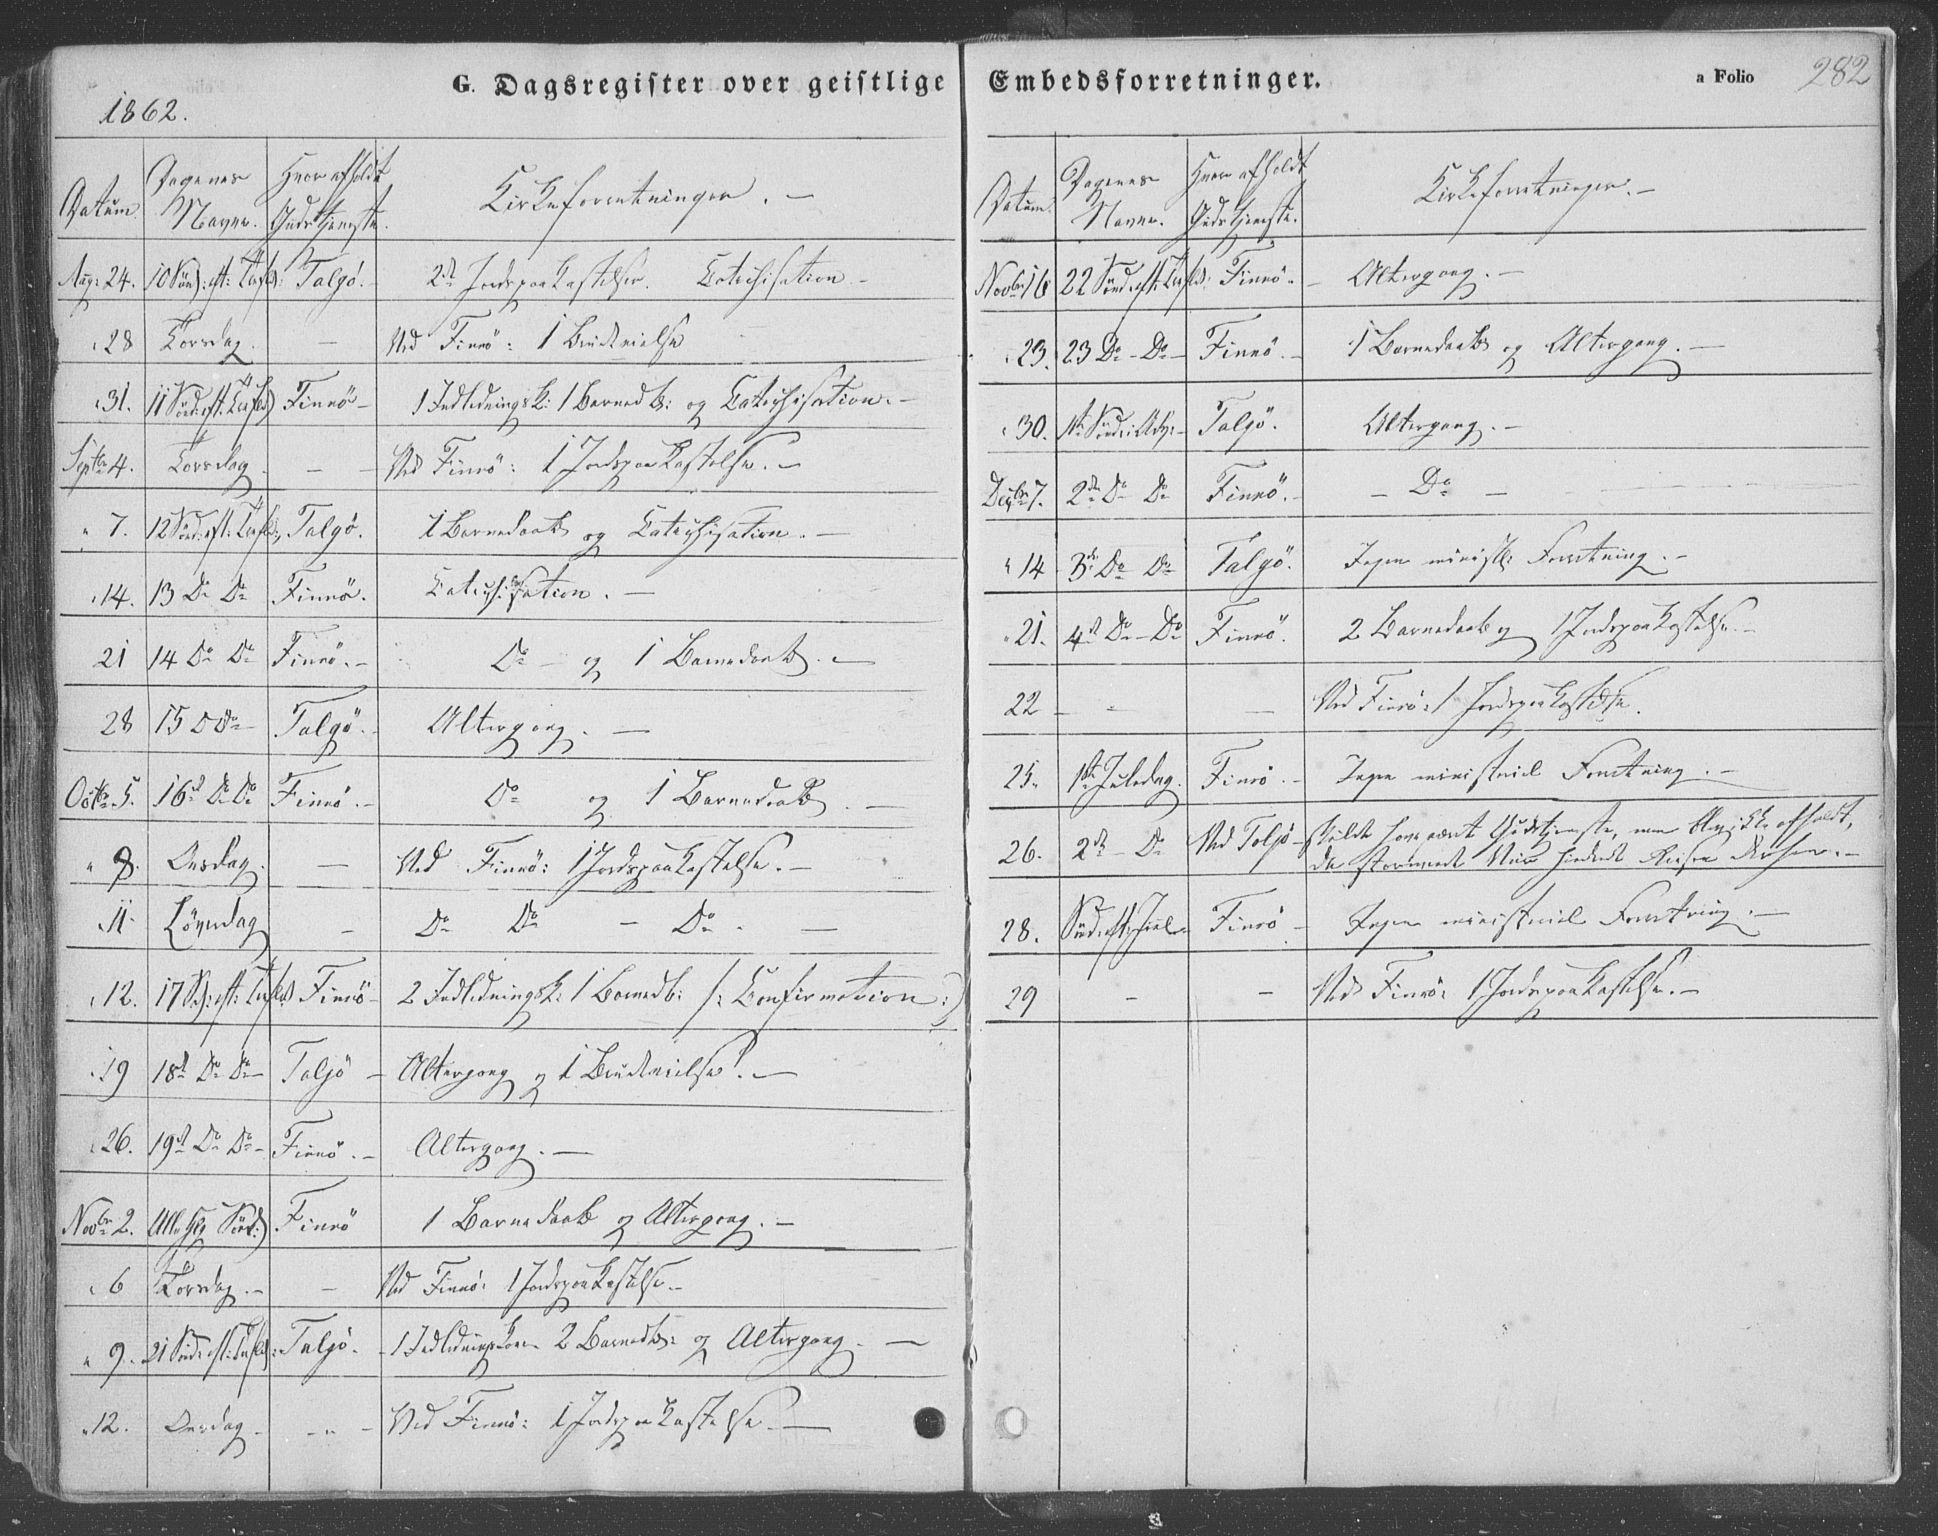 G. Dagsregister over geistlige
1862.
Datum Dagenes Navne. Hvor afholdt Gudstjeneste. Kirkeforretninger. –
Aug: 24. 10 Sönd: eft: Trefold: Talgö. 2de Jordspaakastelser. Catechisation –
" 28 Torsdag. – Ved Finnö: 1 Brudevielse
" 31. 11 Sönd: eft: Trefold: Finnö – 1 Indledningsk: 1 Barnedb: og Catechisation. –
Septbr 4. Torsdag – – Ved Finnö: 1 Jordspaakastelse. –
" 7. 12 Sönd: eft: Trefold: Talgö. 1 Barnedaab og Catechisation. –
" 14. 13 Do Do Finnö. Catechisation. –
21 14 Do Do Finnö. – Do – og 1 Barnedaab. –
28 15 Do Do – Talgö. Altergang. –
Octbr 5. 16de Do Do Finnö. – Do og 1 Barnedaab. –
" 8. Onsdag. – Ved Finnö: 1 Jordspaakastelse. –
" 11. Löverdag – Do Do – Do. –
" 12. 17 Sd: eft: Trefold Finnö – 2 Indledningsk: 1 Barnedb: /: Confirmation :/
" 19 18de Do Do – Talgö – Altergang og 1 Brudevielse. –
" 26. 19de Do Do – Finnö. – Altergang. –
Novbr 2. Alle Helg Sönd: Finnö 1 Barnedaab og Altergang. –
" 6 Torsdag. – – Ved Finnö: 1 Jordspaakastelse. –
" 9. 21 Sönd: eft: Trefold: Talgö. – 1 Indledningskone 2 Barnedb: og Altergang. –
" 12. Onsdag – – " – Ved Finnö: 1 Jordspaakastelse. –
Embedsforretninger.
a Folio 282
Datum Dagenes Navne. Hvor afholdt Gudstjeneste. Kirkeforretninger. –
Novbr 16 22 Sönd: eft: Trefold: Finnö. – Altergang. –
" 23. 23 Do – Do – Finnö. – 1 Barnedaab og Altergang. –
" 30. 1ste Sönd: i Adv: – Talgö. Altergang. –
Decbr 7. 2den Do Do Finnö. – – Do –
" 14 3die Do Do Talgö. Ingen minist: Forretning. –
" 21. 4de Do – Do Finnö. 2 Barnedaab og 1 Jordspaakastelse. –
22 – – – Ved Finnö: 1 Jordspaakastelse.
25. 1ste Juledag. Finnö. – Ingen ministeriel Forretning. –
26. 2den – Do Ved Talgö skulde have været Gudstjeneste, men blev ikke afholdt,
da stormende Veir hindrede Reisen derhen. –
28. Sönd: eft: Juul – Finnö – Ingen ministeriel Forretning. –
29 – – Ved Finnö: 1 Jordspaakastelse. –